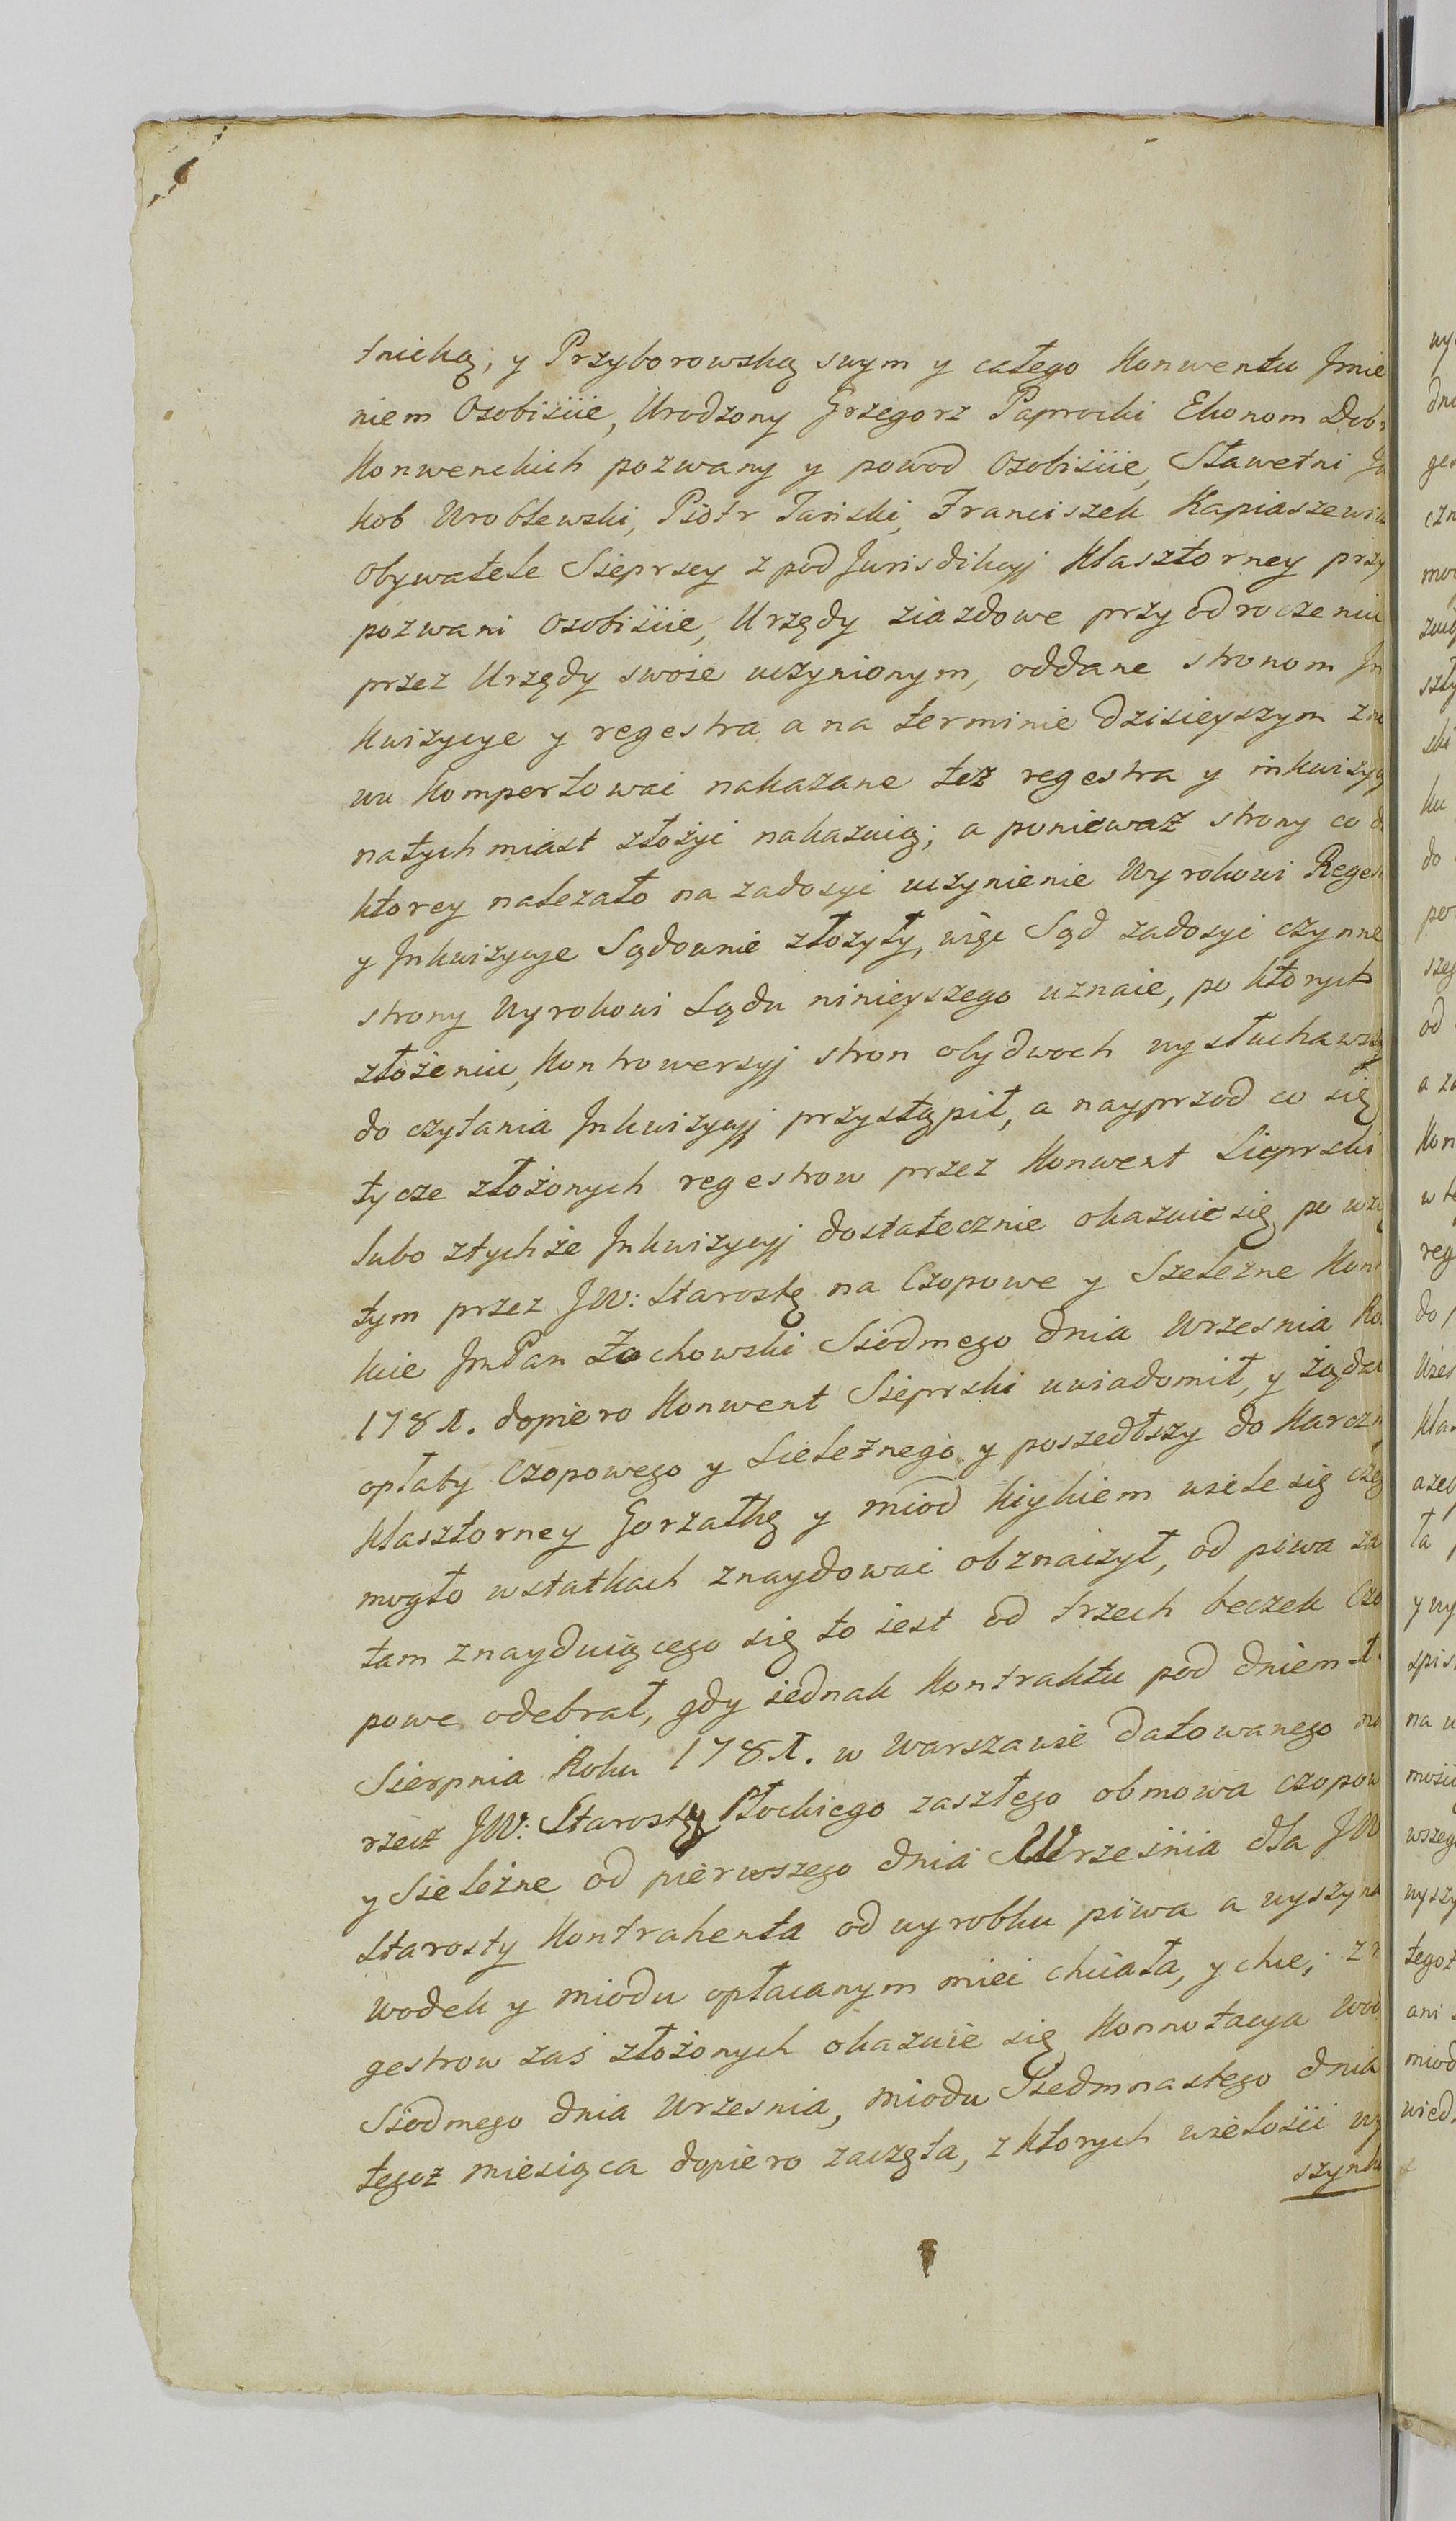 tnicką; y Przyborowską swym y całego Konwentu Jmie
niem Osobiście, Urodzony Grzegorz Paprocki Ekonom Dobr
Konwenckich pozwany y powod Osobiście, Sławetni Ja
kob Wroblewski, Piotr Tański, Franciszek Kapiaszewicz
Obywatele Sieprscy z pod Jurisdikcyj Klasztorney przy
pozwani Osobiście, Urzędy ziazdowe przy odroczeniu
przez Urzędy swoie uczynionym, oddane stronom In
kwizycye y regestra a na terminie dzisieyszym zno
wu kompertować nakazane też regestra y inkwizycy
natychmiast złożyć nakazuią; a ponieważ strony co do
ktorey nalezało na zadosyć uczynienie Wyrokowi Regest
y Inkwizycye Sądownie złożyły, więc Sąd zadosyć czynne
strony Wyrokowi Sądu ninieyszego uznaie, po ktorych
złożeniu, Kontrowersyj stron obydwoch wysłuchawszy
do czytania Inkwizycyj przystąpił, a nayprzod co się
tycze złożonych regestrow przez Konwent Sieprski
lubo z tychże Inkwizycyj dostatecznie okazuie się po wzię
tym przez JW: Starostę na Czopowe y Szelezne Kon
kie ImPan Żochowski Siodmego dnia Wrzesnia Ro
1781. dopiero Konwent Sieprski uwiadomił, y żądał
opłaty Czopowego y Sieleżnego y poszedłszy do Karczm
Klasztorney Gorzałkę y miod kiykiem wiele się czeg
mogło w statkach znaydować obznaczył, od piwa za
tam znayduiącego się to iest od trzech beczek Czo
powe odebrał, gdy iednak Kontraktu pod dniem 1.
Sierpnia Roku 1781. w Warszawie datowanego na
rzecz JW: Starosty Płockiego zaszłego obmowa czopow
y Sieleżne od pierwszego dnia Września dla JW
Starosty Kontrahenta od wyrobku piwa a wyszynk
wodek y miodu opłacanym mieć chciała, y chce; z re
gestrow zaś złożonych okazuie się Konnotacya wod
Siodmego dnia Wrzesnia, miodu Siedmnastego dnia
tegoż miesiąca dopiero zaczęta, z ktorych wielości wy
szynku